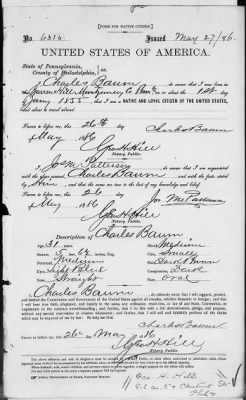 [FORM FOR NATIVE CITIZEN.]
No. 6515 Issued May 27/86.
UNITED STATES OF AMERICA.
State of Pennsylvania,
County of Philadelphia, } ss:
I, Charles Baum, do swear that I was born
in Montgomery Co on or about the 1st
day of Jany 1855; that I am a NATIVE AND LOYAL CITIZEN OF THE UNITED STATES,
and about to travel abroad.
Sworn to before me, this 26th day Charles Baum
of May 1886
Geo H Hill
Notary Public.
I, Jos M Patterson, do swear that I am acquainted
with the above named Charles Baum and with the facts stated
by him and that the same are true to the best of my knowledge and belief.
Sworn to before me, this 26 day
of May 1886 Jos M Patterson
Geo H Hill
Notary Public.
Description of Charles Baum
Age: 31 years.
Stature: 5 feet
Medium
Eyes: Light Blue
Nose: Straight
Mouth: Medium
Chin: Small
Hair: Dark Brown
Complexion: Dark
Face: Oval
I, Charles Baum, do solemnly swear that I will support, protect,
and defend the Constitution and Government of the United States against all enemies, whether domestic or foreign; and that
I will bear true faith, allegiance, and loyalty to the same, any ordinance, resolution, or law of any State, Convention, or
Legislature to the contrary notwithstanding; and further, that I do this with a full determination, pledge, and purpose, without
any mental reservation or evasion whatsoever; and further, that I will well and faithfully perform all the duties
which may be required of me by law: So help me God.
Charles Baum
Sworn to before me, this 26th day of May 1886
Geo H Hill
Notary Public.
Geo. H. Hill